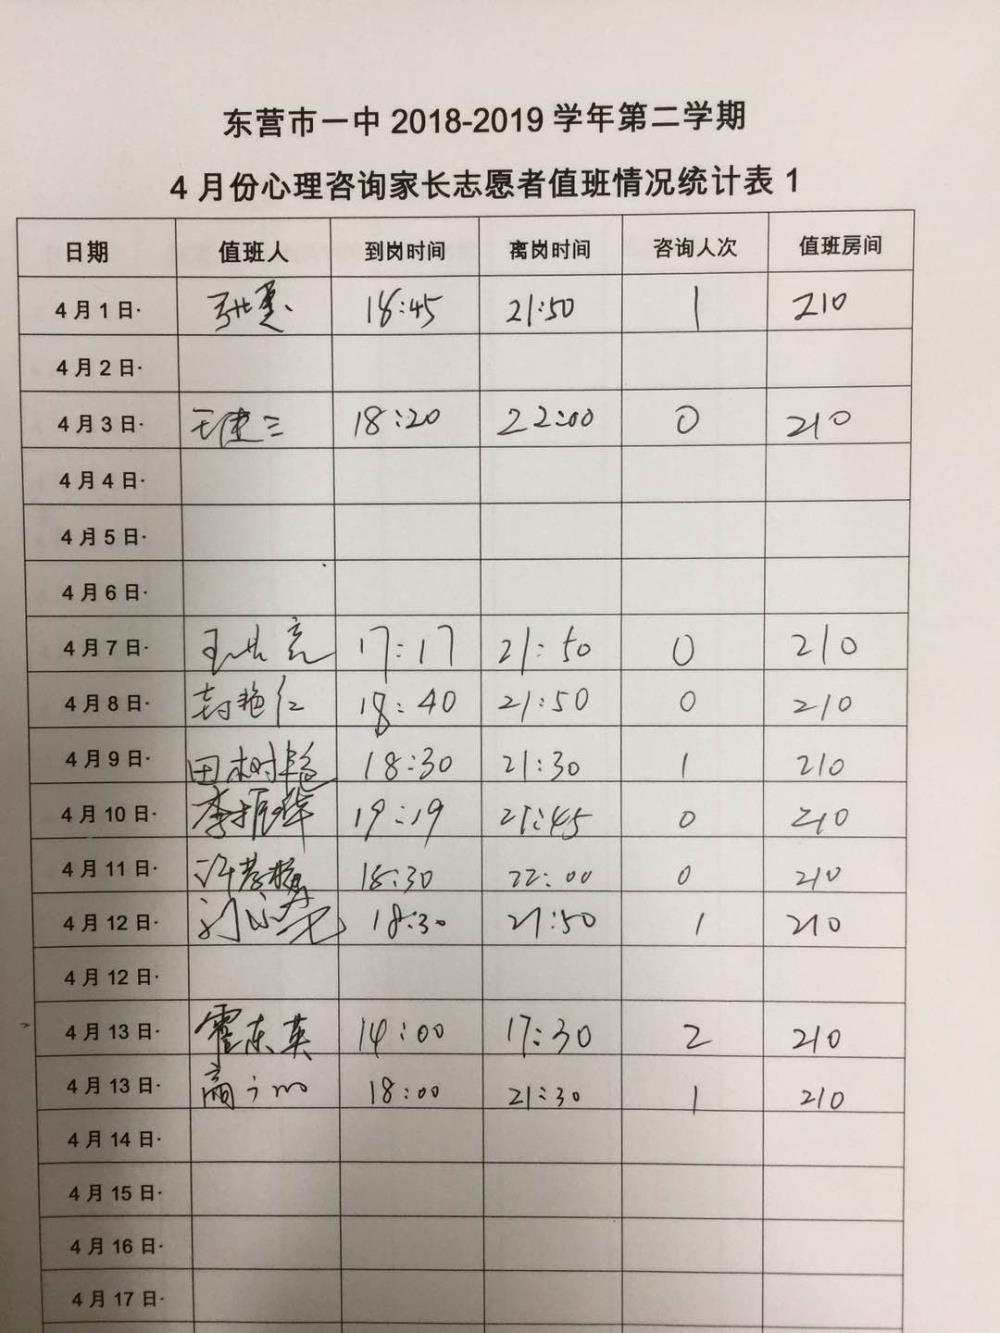 东营市一中 2018-2019 学年第二学期
4 月份心理咨询家长志愿者值班情况统计表 1
日期 值班人 到岗时间 离岗时间 咨询人次 值班房间
4 月 1 日· 18:45 21:50 1 210
4 月 2 日·
4 月 3 日· 18:20 22:00 0 210
4 月 4 日·
4 月 5 日·
4 月 6 日·
4 月 7 日· 17:17 21:50 0 210
4 月 8 日· 18:40 21:50 0 210
4 月 9 日· 田树艳 18:30 21:30 1 210
4 月 10 日· 李振华 19:19 21:45 0 210
4 月 11 日· 18:30 22:00 0 210
4 月 12 日· 18:30 21:50 1 210
4 月 12 日·
4 月 13 日· 霍东英 14:00 17:30 2 210
4 月 13 日· 18:00 21:30 1 210
4 月 14 日·
4 月 15 日·
4 月 16 日·
4 月 17 日·